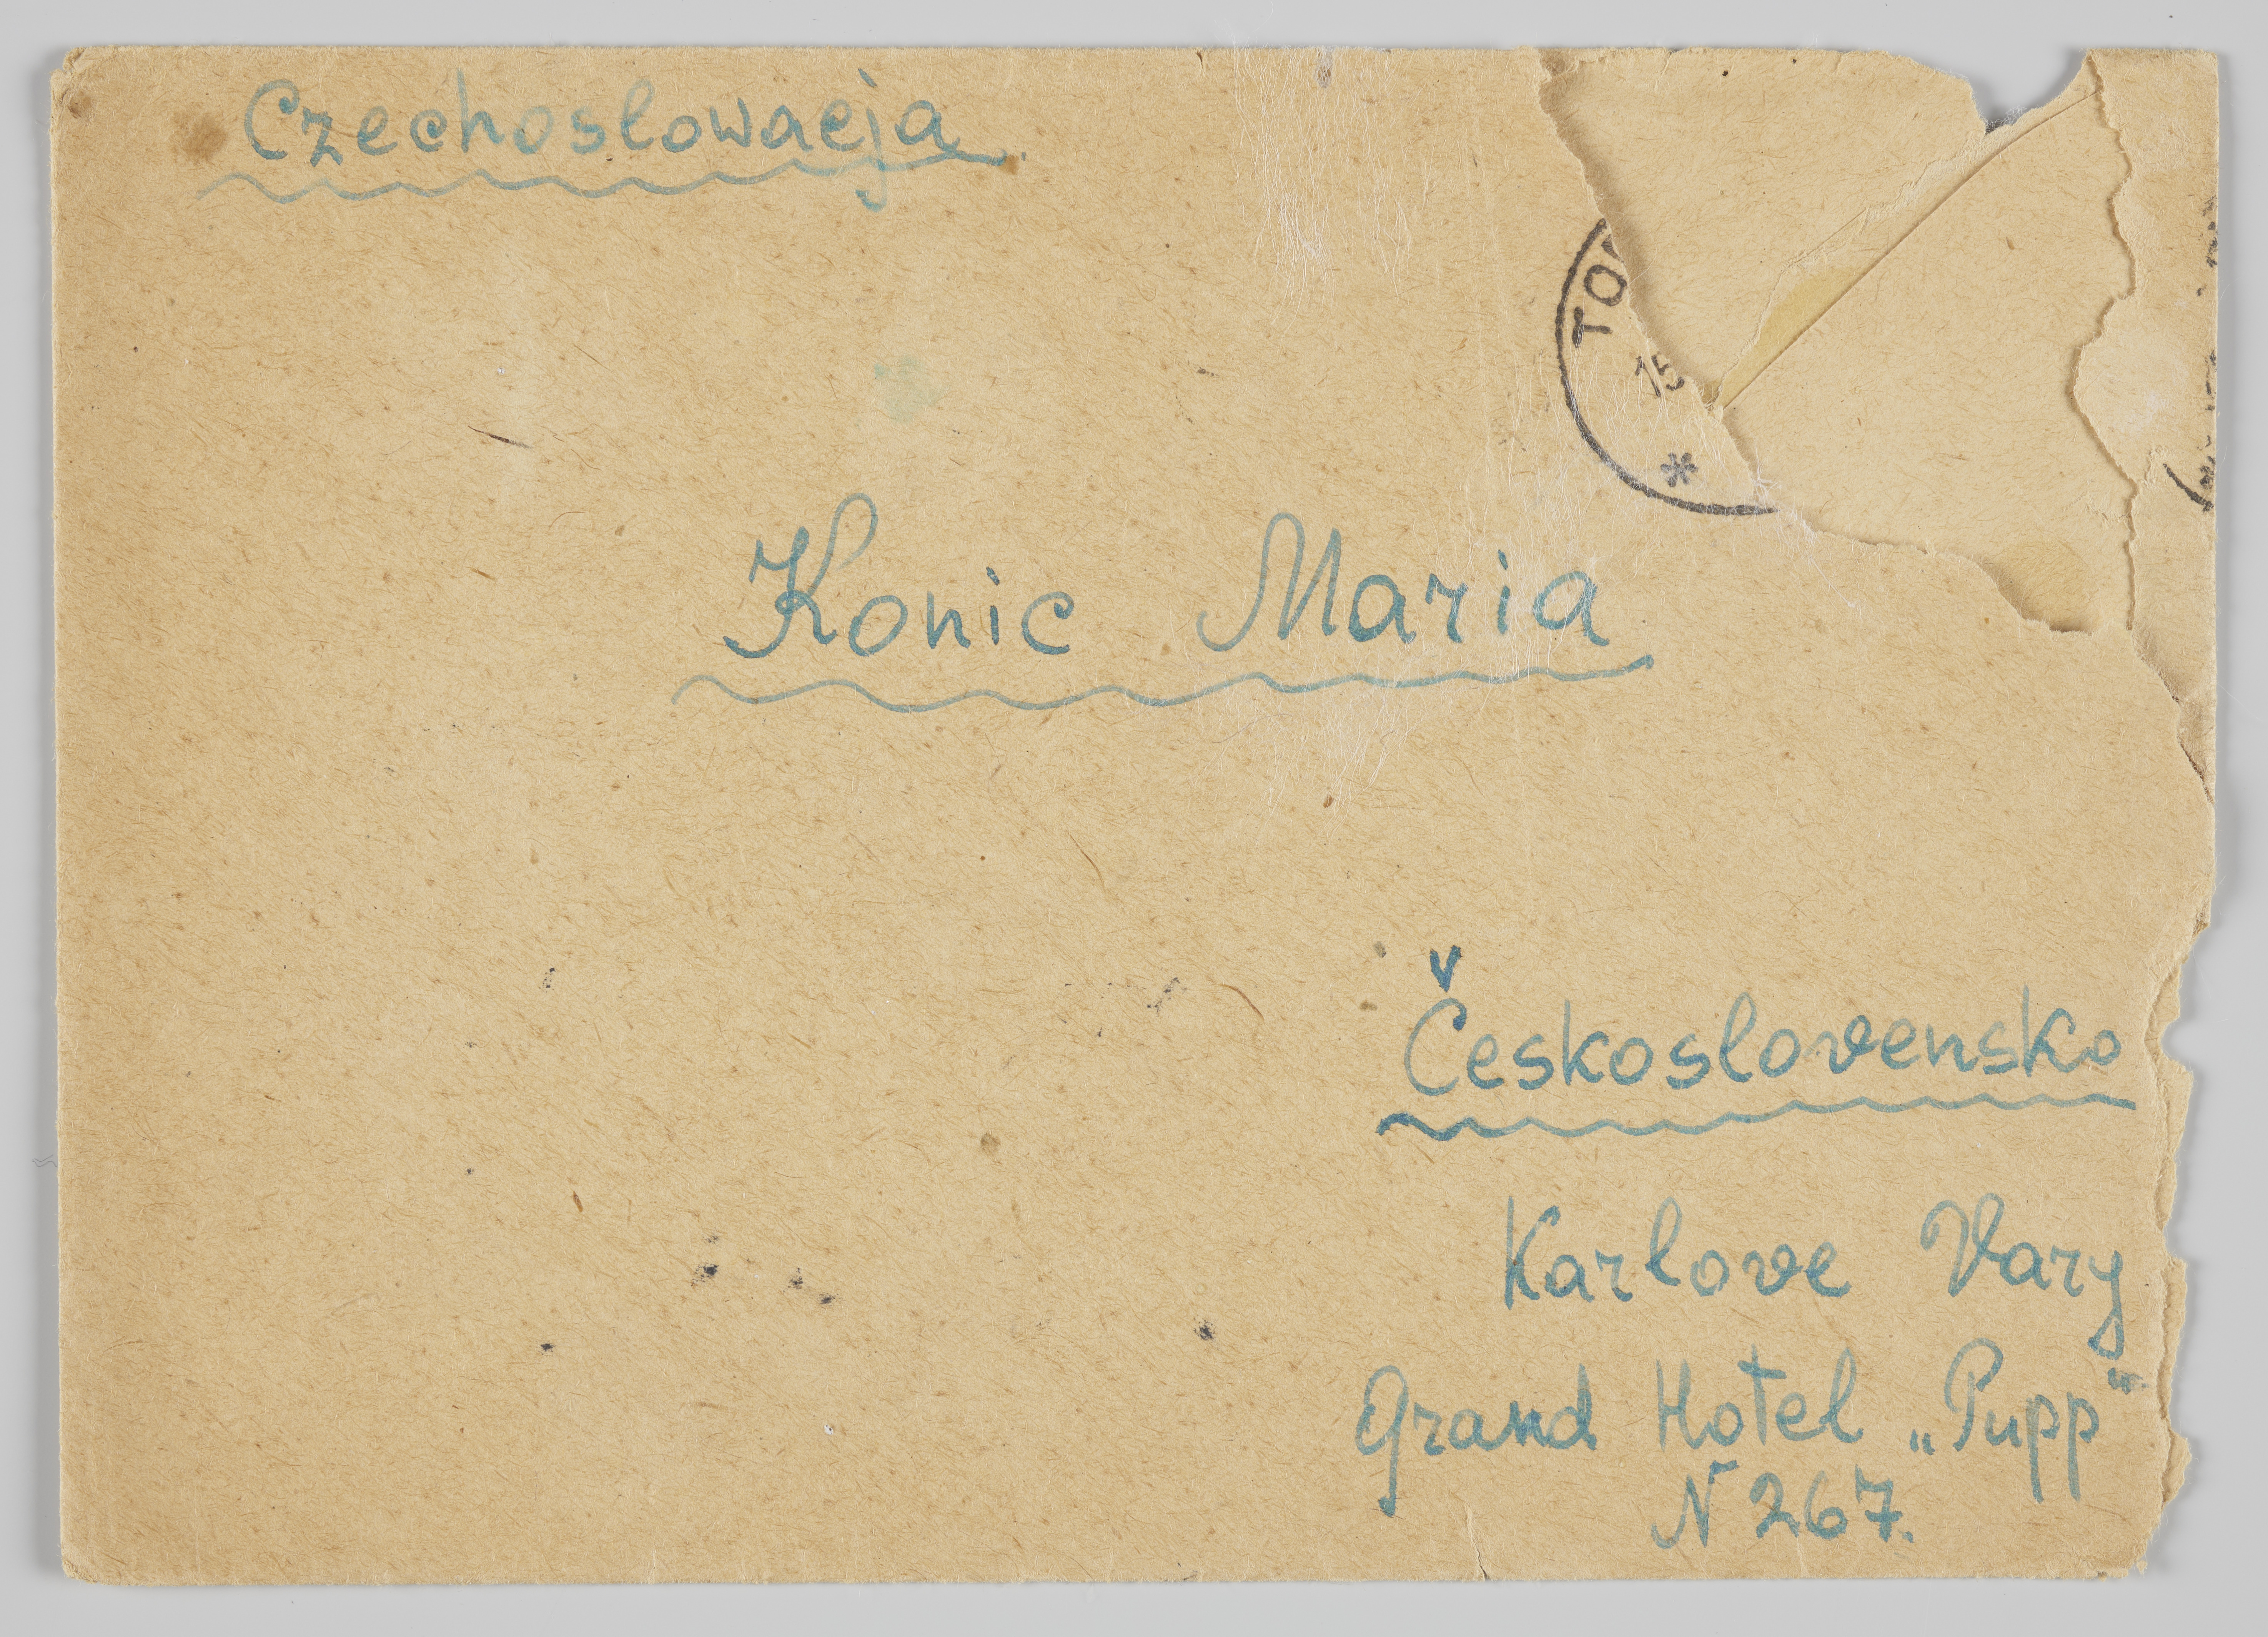 Czechoslowacja
TO
15
*
Konic Maria
Československo
Karlove Vary
Grand Hotel „Pupp"
N 267.